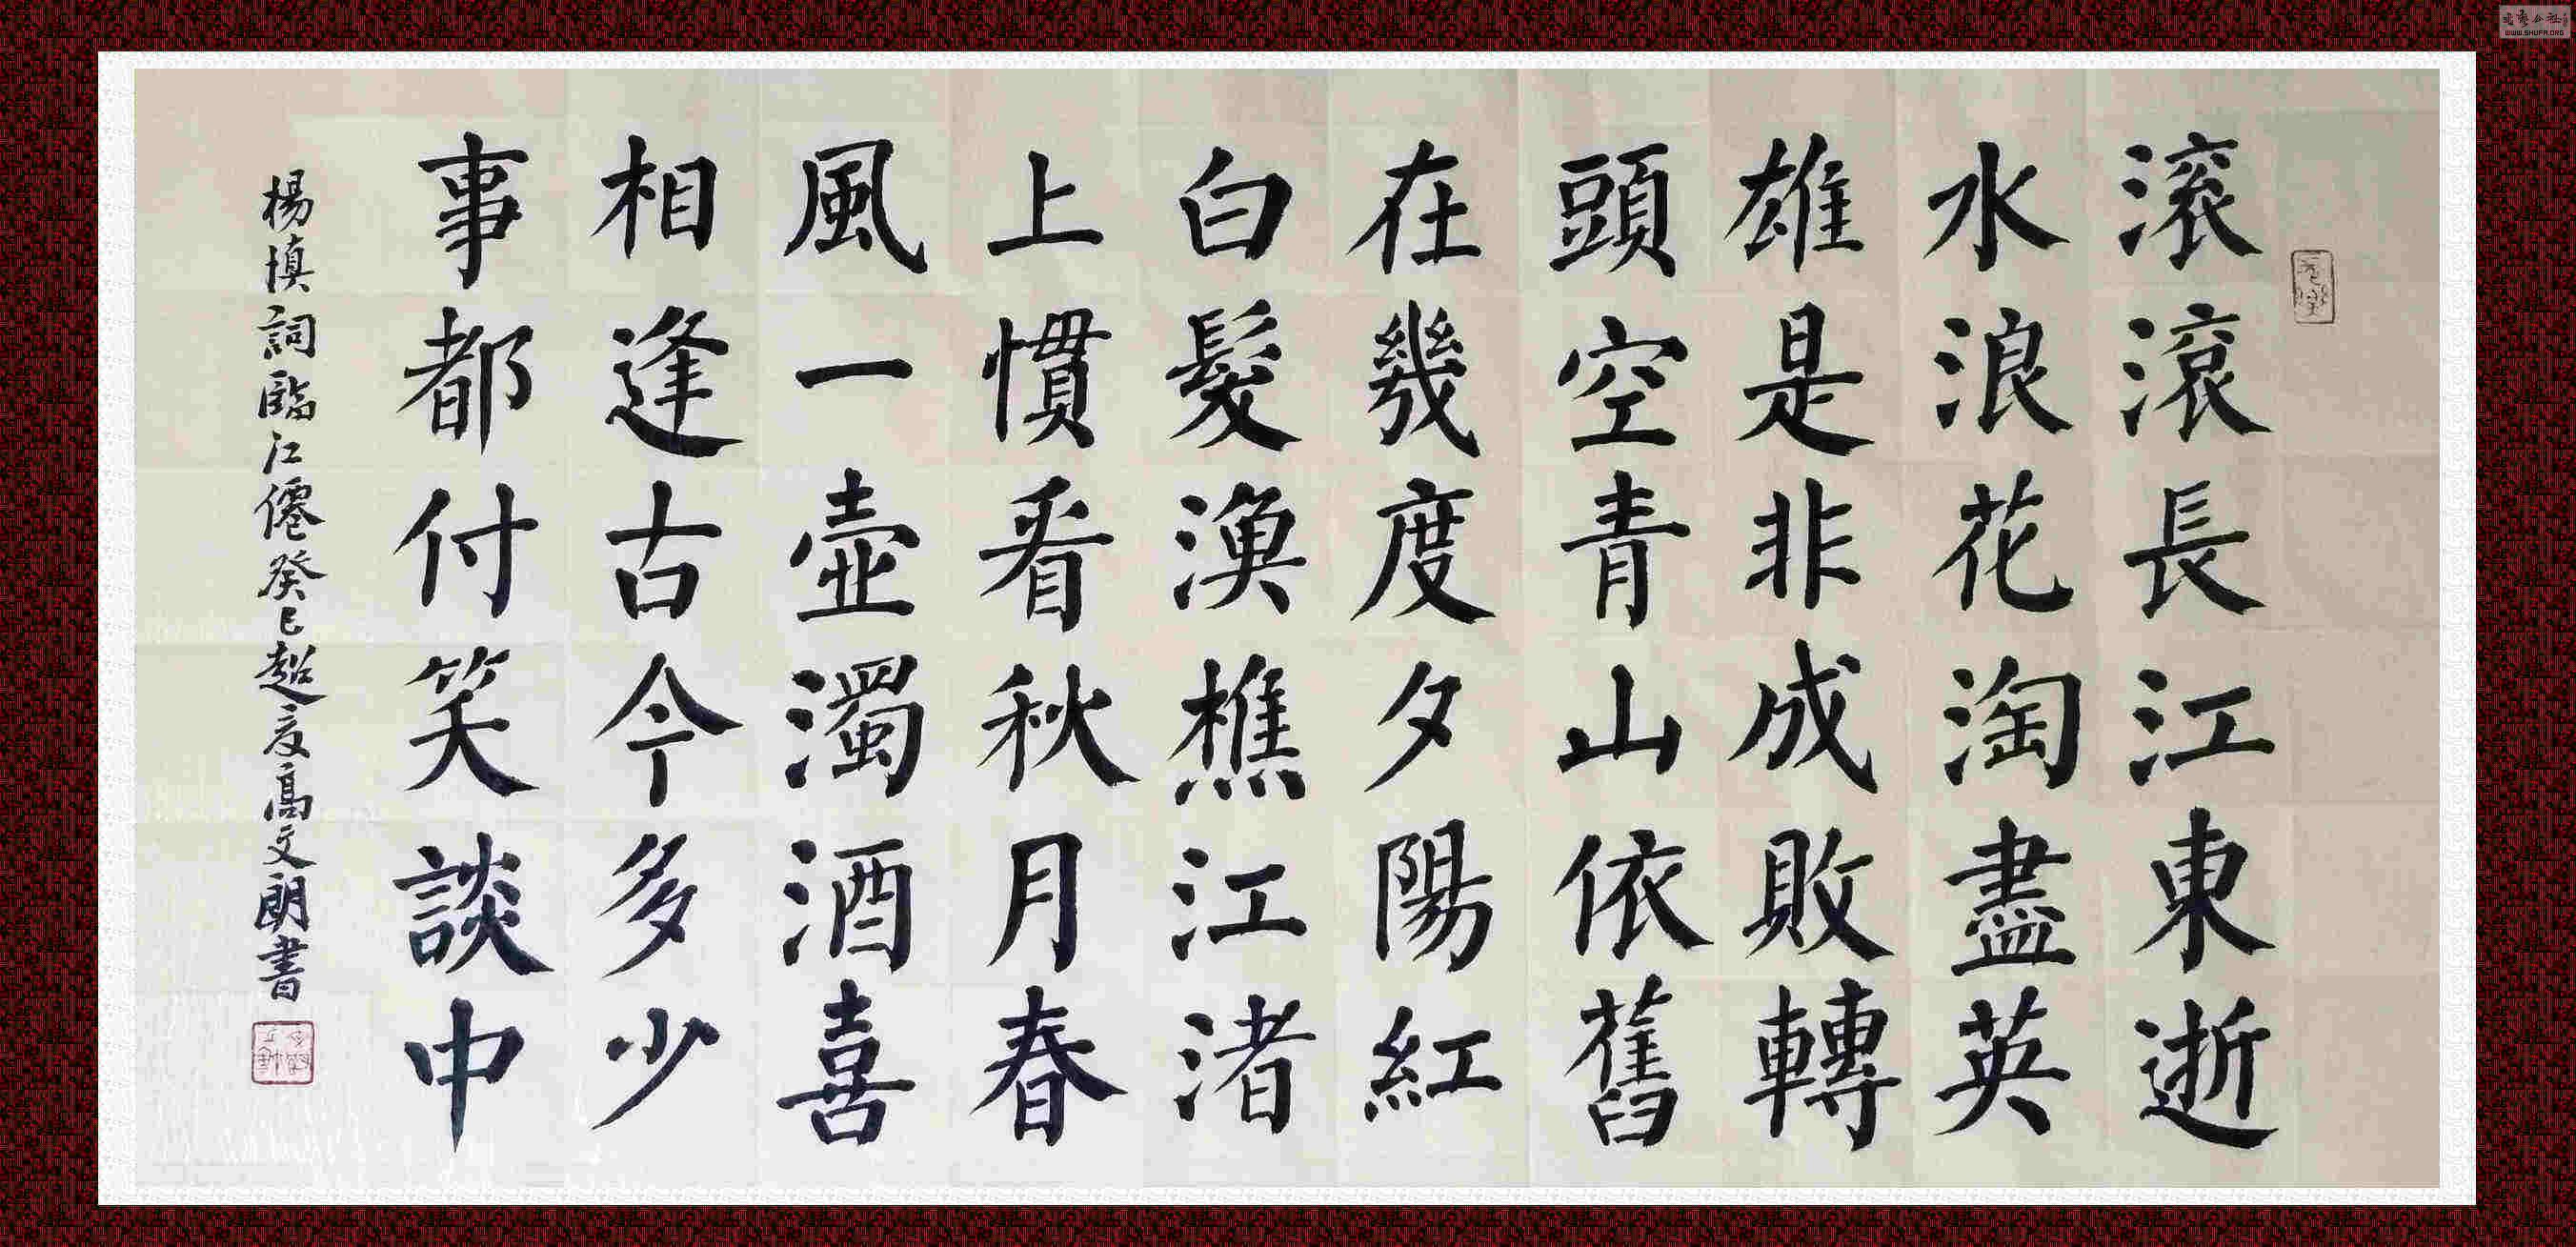 滚滚長江東逝
水浪花淘盡英
雄是非成敗轉
頭空青山依舊
在幾度夕陽紅
白髮漁樵江渚
上慣看秋月春
風一壺濁酒喜
相逢古今多少
事都付笑談中
楊慎詞臨江僊癸巳超度高文朗書
WWW.SHUFA.ORG